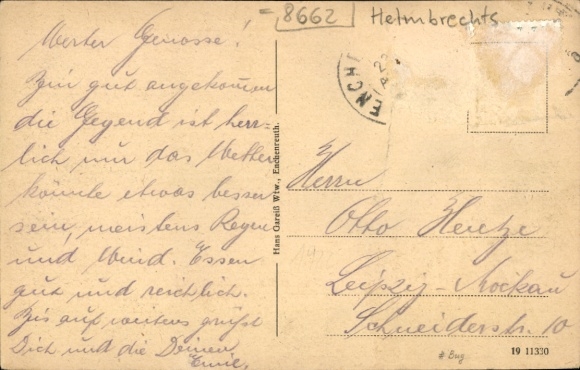 = 8662 Helmbrechts
Werter Genosse!
Bin gut angekommen
die Gegend ist herr-
lich nur das Wetter
könnte etwas besser
sein, meistens Regen
und Wind. Essen
gut und reichlich.
Bis auf weiteres grüßt
Dich und die Deinen
Emil.
Hans Gareiß Wtw., Enchenreuth.
ENCH
Herrn
Otto Hentze
Leipzig-Mockau
Schneiderstr. 10
# Bug
19 11330